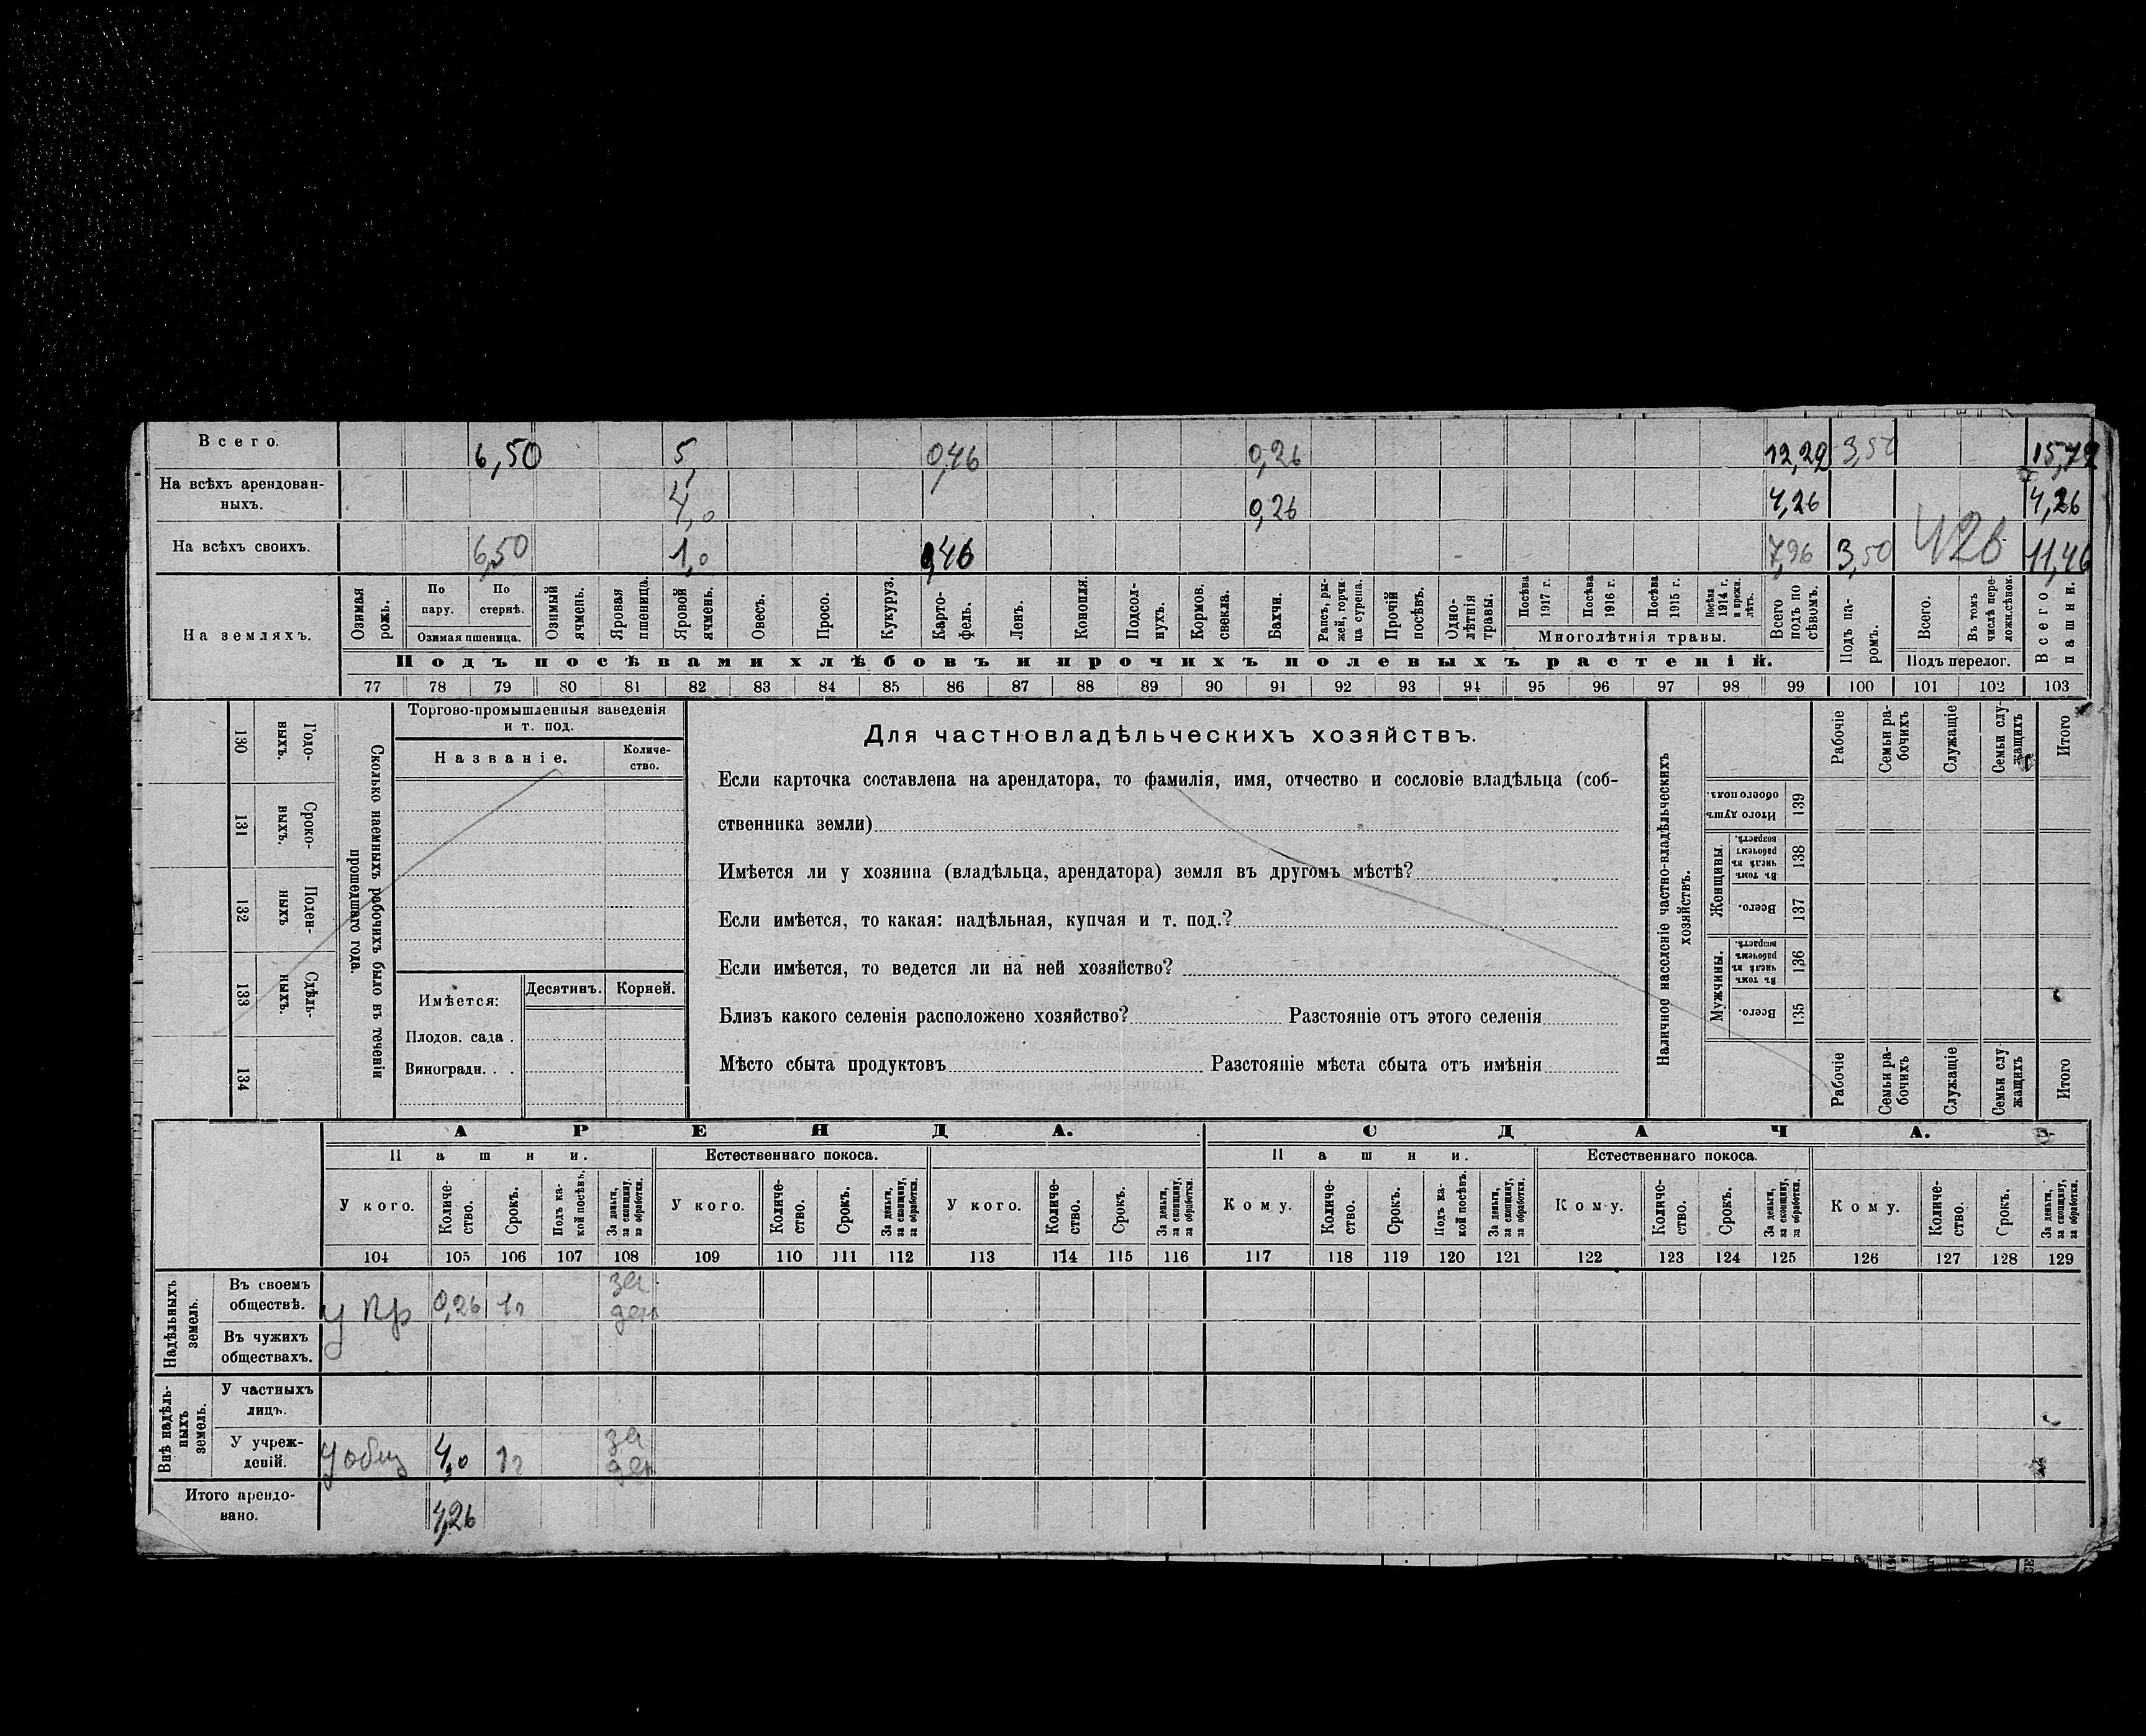 Всего. 6,50 5, 0,46 0,26 12,22 3,50 15,72
На всѣхъ арендован-
ныхъ. 4,0 0,26 4,26 4,26
На всѣхъ своихъ. 6,50 1,0 0,46 7,96 3,50 426 11,46
На земляхъ.
Озимая рожь.
По пару.
По стернѣ.
Озимая пшеница.
Озимый ячмень.
Яровая пшеница.
Яровой ячмень.
Овесъ.
Просо.
Кукуруз.
Карто-
фель.
Ленъ.
Конопля.
Подсол-
нухъ.
Кормов. свекла.
Бахчи.
Рапсъ, ры-
жей, горчи-
ца сурепа.
Прочій посѣвъ.
Одно-
лѣтнія травы.
Посѣва 1917 г.
Посѣва 1916 г.
Посѣва 1915 г.
Посѣва 1914 г. и прежн. лѣтъ.
Многолѣтнія травы.
Всего подъ по
сѣвомъ.
Подъ па-
ромъ.
Всего.
Въ томъ числѣ пере-
ложн.сѣнок.
Подъ перелог.
Всего пашни.
Подъ посѣвами хлѣбовъ и прочихъ полевыхъ растеній.
77 78 79 80 81 82 83 84 85 86 87 88 89 90 91 92 93 94 95 96 97 98 99 100 101 102 103
Сколько наемныхъ рабочихъ было въ теченіи
прошедшаго года.
Годо-
выхъ.
130
Сроко-
выхъ.
131
Поден-
ныхъ
132
Сдѣль-
ныхъ.
133
134
Торгово-промышленныя заведенія
и т. под.
Названіе.
Количе-
ство.
Имѣется: Десятинъ. Корней.
Плодов. сада .
Виноградн. . .
Для частновладѣльческихъ хозяйствъ.
Если карточка составлена на арендатора, то фамилія, имя, отчество и сословіе владѣльца (соб-
ственника земли)
Имѣется ли у хозяина (владѣльца, арендатора) земля въ другомъ мѣстѣ?
Если имѣется, то какая: надѣльная, купчая и т. под.?
Если имѣется, то ведется ли на ней хозяйство?
Близъ какого селенія расположено хозяйство? Разстояніе отъ этого селенія
Мѣсто сбыта продуктовъ Разстояніе мѣста сбыта отъ имѣнія
Наличное населеніе частно-владѣльческихъ
хозяйствъ.
Рабочіе
Семьи ра-
бочихъ
Служащіе
Семьи слу-
жащихъ
Итого
Итого душъ обоего пола.
139
Женщины.
Въ томъ числѣ въ рабочемъ возрастѣ.
138
Всего.
137
Мужчины.
Въ томъ числѣ въ рабочемъ возрастѣ.
136
Всего.
135
Рабочіе
Семьи ра-
бочихъ
Служащіе
Семьи слу
жащихъ
Итого
АРЕНДА. СДАЧА.
Пашни. Естественнаго покоса. Пашни. Естественнаго покоса.
У кого. Количе-
ство. Срокъ. Подъ ка-
кой посѣвъ. За деньги, за скопщину, за обработки.
У кого. Количе-
ство. Срокъ. За деньги, за скопщину, за обработки.
У кого. Количе-
ство. Срокъ. За деньги, за скопщину, за обработки.
Кому. Количе-
ство. Срокъ. Подъ ка-
кой посѣвъ. За деньги, за скопщину, за обработки.
Кому. Количе-
ство. Срокъ. За деньги, за скопщину, за обработки.
Кому. Количе-
ство. Срокъ. За деньги, за скопщину, за обработки.
104 105 106 107 108 109 110 111 112 113 114 115 116 117 118 119 120 121 122 123 124 125 126 127 128 129
Надѣльныхъ земель.
Въ своемъ
обществѣ. у пр 0,26 1г за
ден
Въ чужихъ
обществахъ.
Внѣ надѣль-
ныхъ земель.
У частныхъ
лицъ.
У учреж-
деній. у общ 4,0 1г за
ден
Итого арендо-
вано. 4,26